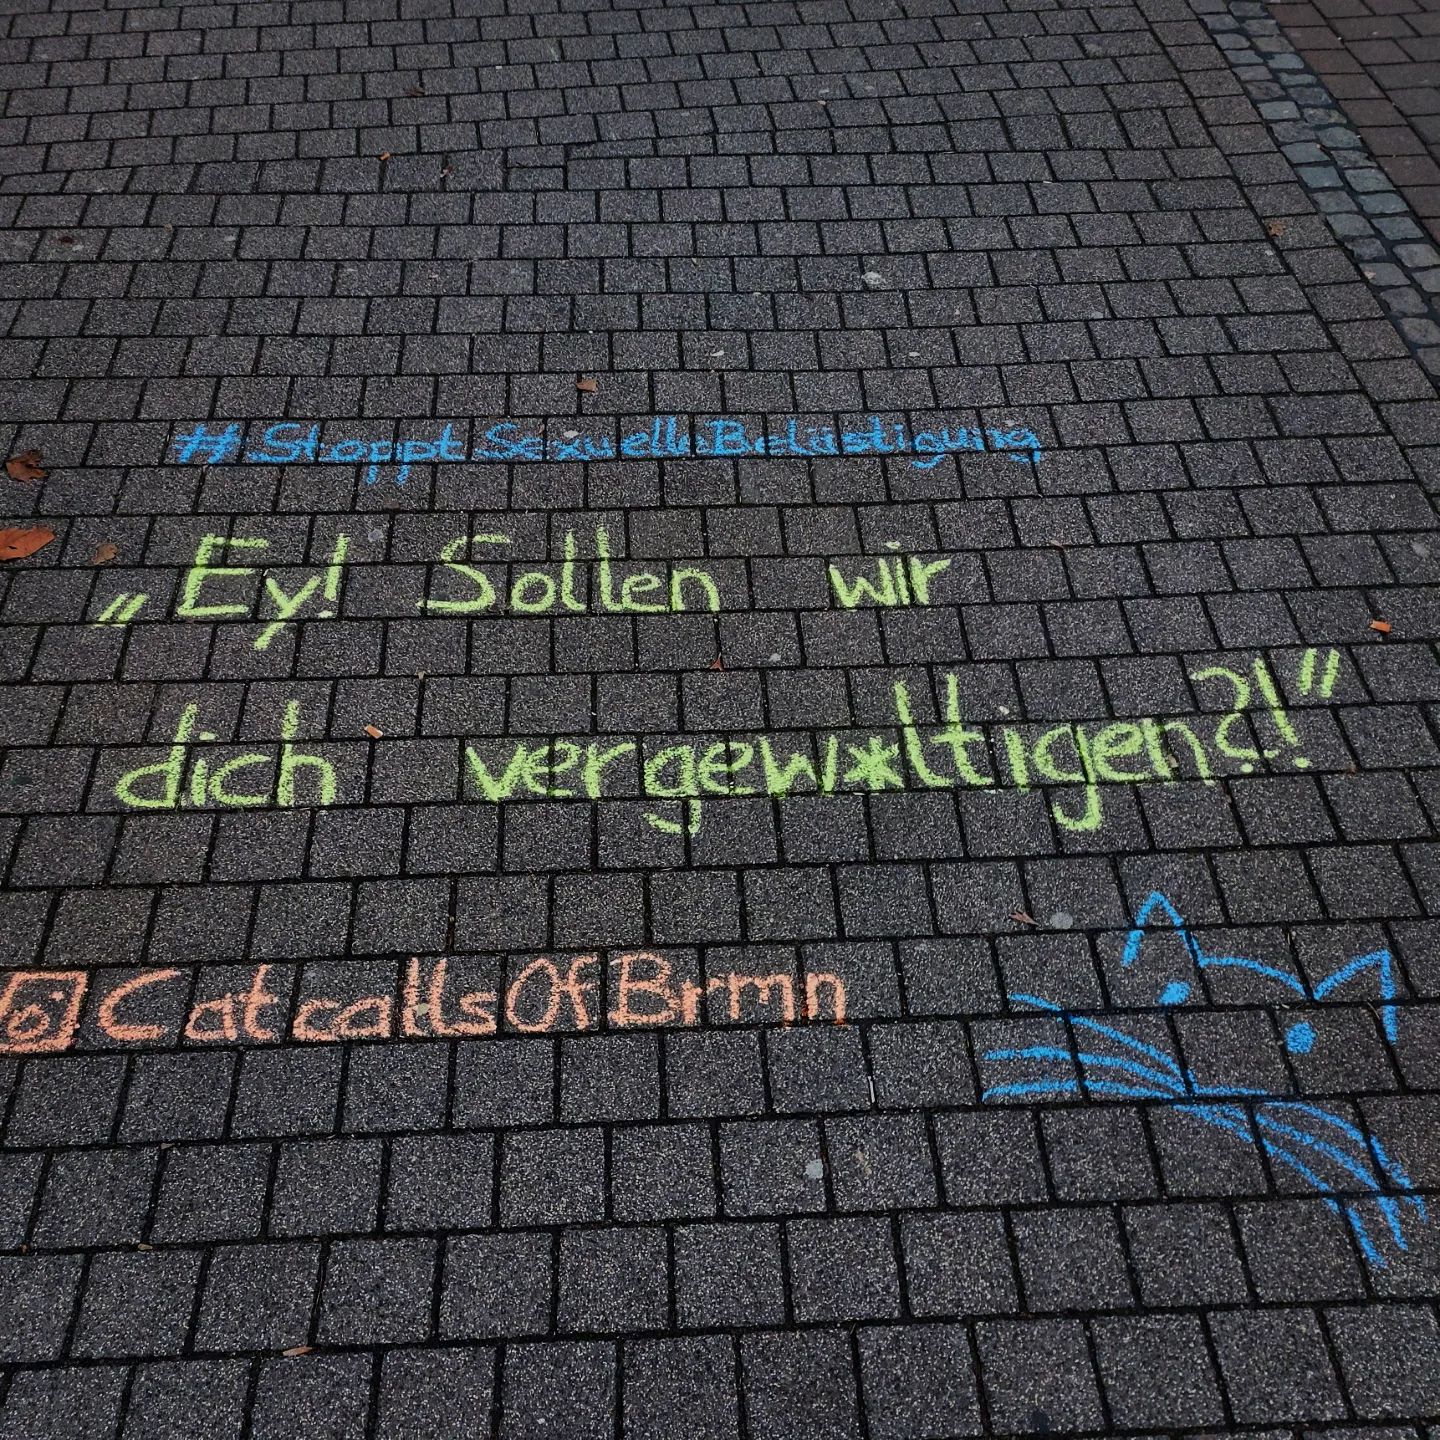 #StopptSexuelleBelästigung
„Ey! Sollen wir
dich vergew*ltigen?!"
CatcallsOfBrmn